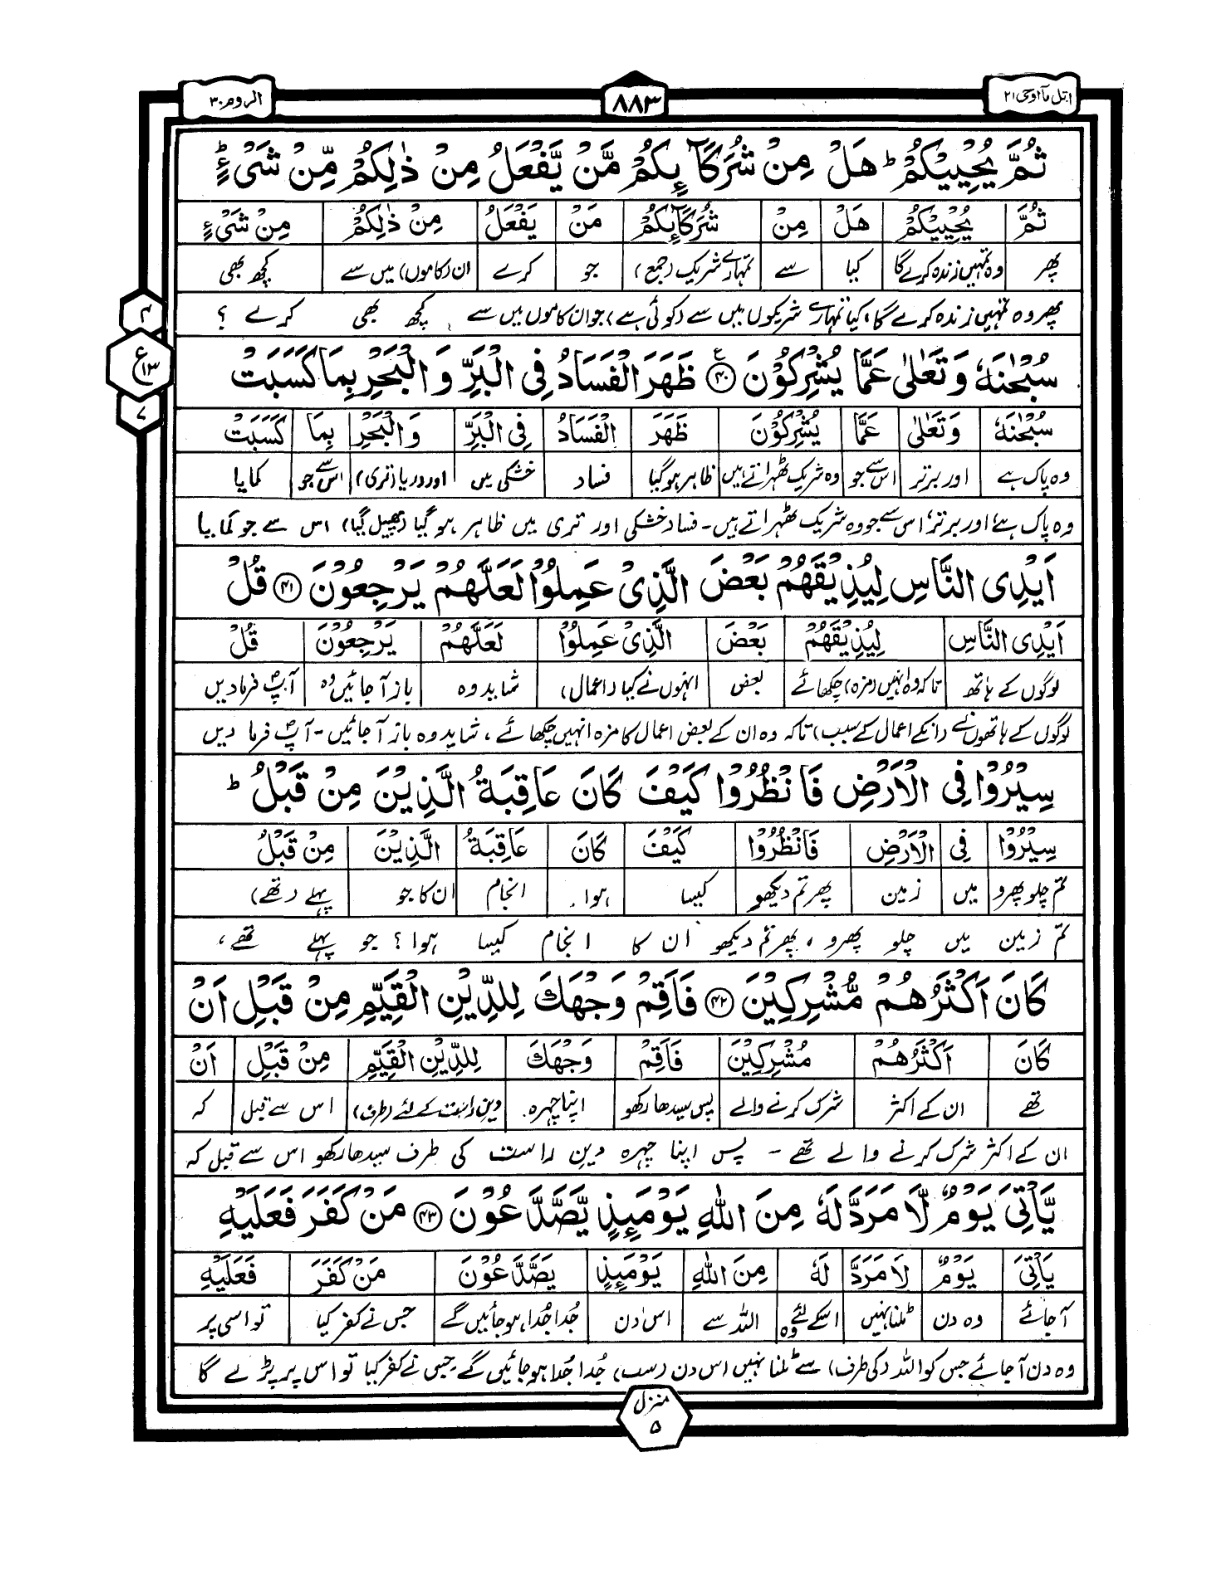 اتل مآ اوحی ۲۱
۸۸۳
الروم ۳۰
ثُمَّ یُحْیِیْكُمْ ؕ هَلْ مِنْ شُرَكَآىِٕكُمْ مَّنْ یَّفْعَلُ مِنْ ذٰلِكُمْ مِّنْ شَیْءٍ ؕ
ثُمَّ یُحْیِیْكُمْ هَلْ مِنْ شُرَكَآىِٕكُمْ مَنْ یَفْعَلُ مِنْ ذٰلِكُمْ مِنْ شَیْءٍ
پھر وہ تمہیں زندہ کرے گا کیا سے تمہارے شریک (جمع) جو کرے ان (کاموں) میں سے کچھ بھی
پھر وہ تمہیں زندہ کرے گا، کیا تمہارے شریکوں میں سے (کوئی ہے) جو ان کاموں میں سے کچھ بھی کرے ؟
۴
ع ۱۳
۷
سُبْحٰنَهٗ وَتَعٰلٰی عَمَّا یُشْرِكُوْنَ ﴿۴۰﴾ ظَهَرَ الْفَسَادُ فِی الْبَرِّ وَالْبَحْرِ بِمَا كَسَبَتْ
سُبْحٰنَهٗ وَتَعٰلٰی عَمَّا یُشْرِكُوْنَ ظَهَرَ الْفَسَادُ فِی الْبَرِّ وَالْبَحْرِ بِمَا كَسَبَتْ
وہ پاک ہے اور برتر اس سے جو وہ شریک ٹھہراتے ہیں ظاہر ہو گیا فساد خشکی میں اور دریا (تری) اس سے جو کمایا
وہ پاک ہے اور برتر اس سے جو وہ شریک ٹھہراتے ہیں۔ فساد خشکی اور تری میں ظاہر ہو گیا (پھیل گیا) اس سے جو کمایا
اَیْدِی النَّاسِ لِیُذِیْقَهُمْ بَعْضَ الَّذِیْ عَمِلُوْا لَعَلَّهُمْ یَرْجِعُوْنَ ﴿۴۱﴾ قُلْ
اَیْدِی النَّاسِ لِیُذِیْقَهُمْ بَعْضَ الَّذِیْ عَمِلُوْا لَعَلَّهُمْ یَرْجِعُوْنَ قُلْ
لوگوں کے ہاتھ تاکہ وہ انہیں (مزہ) چکھائے بعض انہوں نے کیا (اعمال) شاید وہ باز آجائیں وہ آپؐ فرما دیں
لوگوں کے ہاتھوں نے (انکے اعمال کے سبب) تاکہ وہ ان کے بعض اعمال کا مزہ انہیں چکھائے، شاید وہ باز آجائیں۔ آپؐ فرما دیں
سِیْرُوْا فِی الْاَرْضِ فَانْظُرُوْا كَیْفَ كَانَ عَاقِبَةُ الَّذِیْنَ مِنْ قَبْلُ ؕ
سِیْرُوْا فِی الْاَرْضِ فَانْظُرُوْا كَیْفَ كَانَ عَاقِبَةُ الَّذِیْنَ مِنْ قَبْلُ
تم چلو پھرو میں زمین پھر تم دیکھو کیسا ہوا انجام ان کا جو پہلے (تھے)
تم زمین میں چلو پھرو، پھر تم دیکھو ان کا انجام کیسا ہوا؟ جو پہلے تھے،
كَانَ اَكْثَرُهُمْ مُّشْرِكِیْنَ ﴿۴۲﴾ فَاَقِمْ وَجْهَكَ لِلدِّیْنِ الْقَیِّمِ مِنْ قَبْلِ اَنْ
كَانَ اَكْثَرُهُمْ مُشْرِكِیْنَ فَاَقِمْ وَجْهَكَ لِلدِّیْنِ الْقَیِّمِ مِنْ قَبْلِ اَنْ
تھے ان کے اکثر شرک کرنے والے پس سیدھا رکھو اپنا چہرہ دین راست کے لئے (طرف) اس سے قبل کہ
ان کے اکثر شرک کرنے والے تھے۔ پس اپنا چہرہ دین راست کی طرف سیدھا رکھو اس سے قبل کہ
یَّاْتِیَ یَوْمٌ لَّا مَرَدَّ لَهٗ مِنَ اللّٰهِ یَوْمَىِٕذٍ یَّصَّدَّعُوْنَ ﴿۴۳﴾ مَنْ كَفَرَ فَعَلَیْهِ
یَاْتِیَ یَوْمٌ لَا مَرَدَّ لَهٗ مِنَ اللّٰهِ یَوْمَىِٕذٍ یَصَّدَّعُوْنَ مَنْ كَفَرَ فَعَلَیْهِ
آجائے وہ دن ٹلنا نہیں اسکے لئے وہ اللہ سے اس دن جُدا جُدا ہو جائیں گے جس نے کفر کیا تو اسی پر
وہ دن آجائے جس کو اللہ (کی طرف) سے ٹلنا نہیں اس دن (سب) جُدا جُدا ہو جائیں گے جس نے کفر کیا تو اس پر پڑے گا
منزل ۵